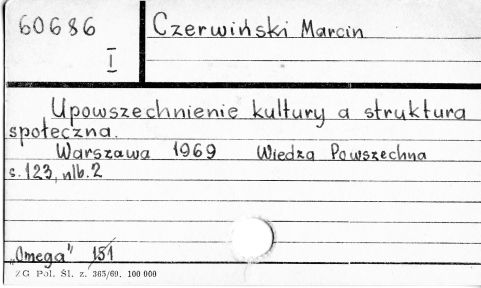 60686
I
Czerwiński Marcin
Upowszechnienie kultury a struktura
społeczna.
Warszawa 1969 Wiedza Powszechna
s. 123, nlb. 2
„Omega” 151
ZG Pol. Śl. z. 365/69. 100 000